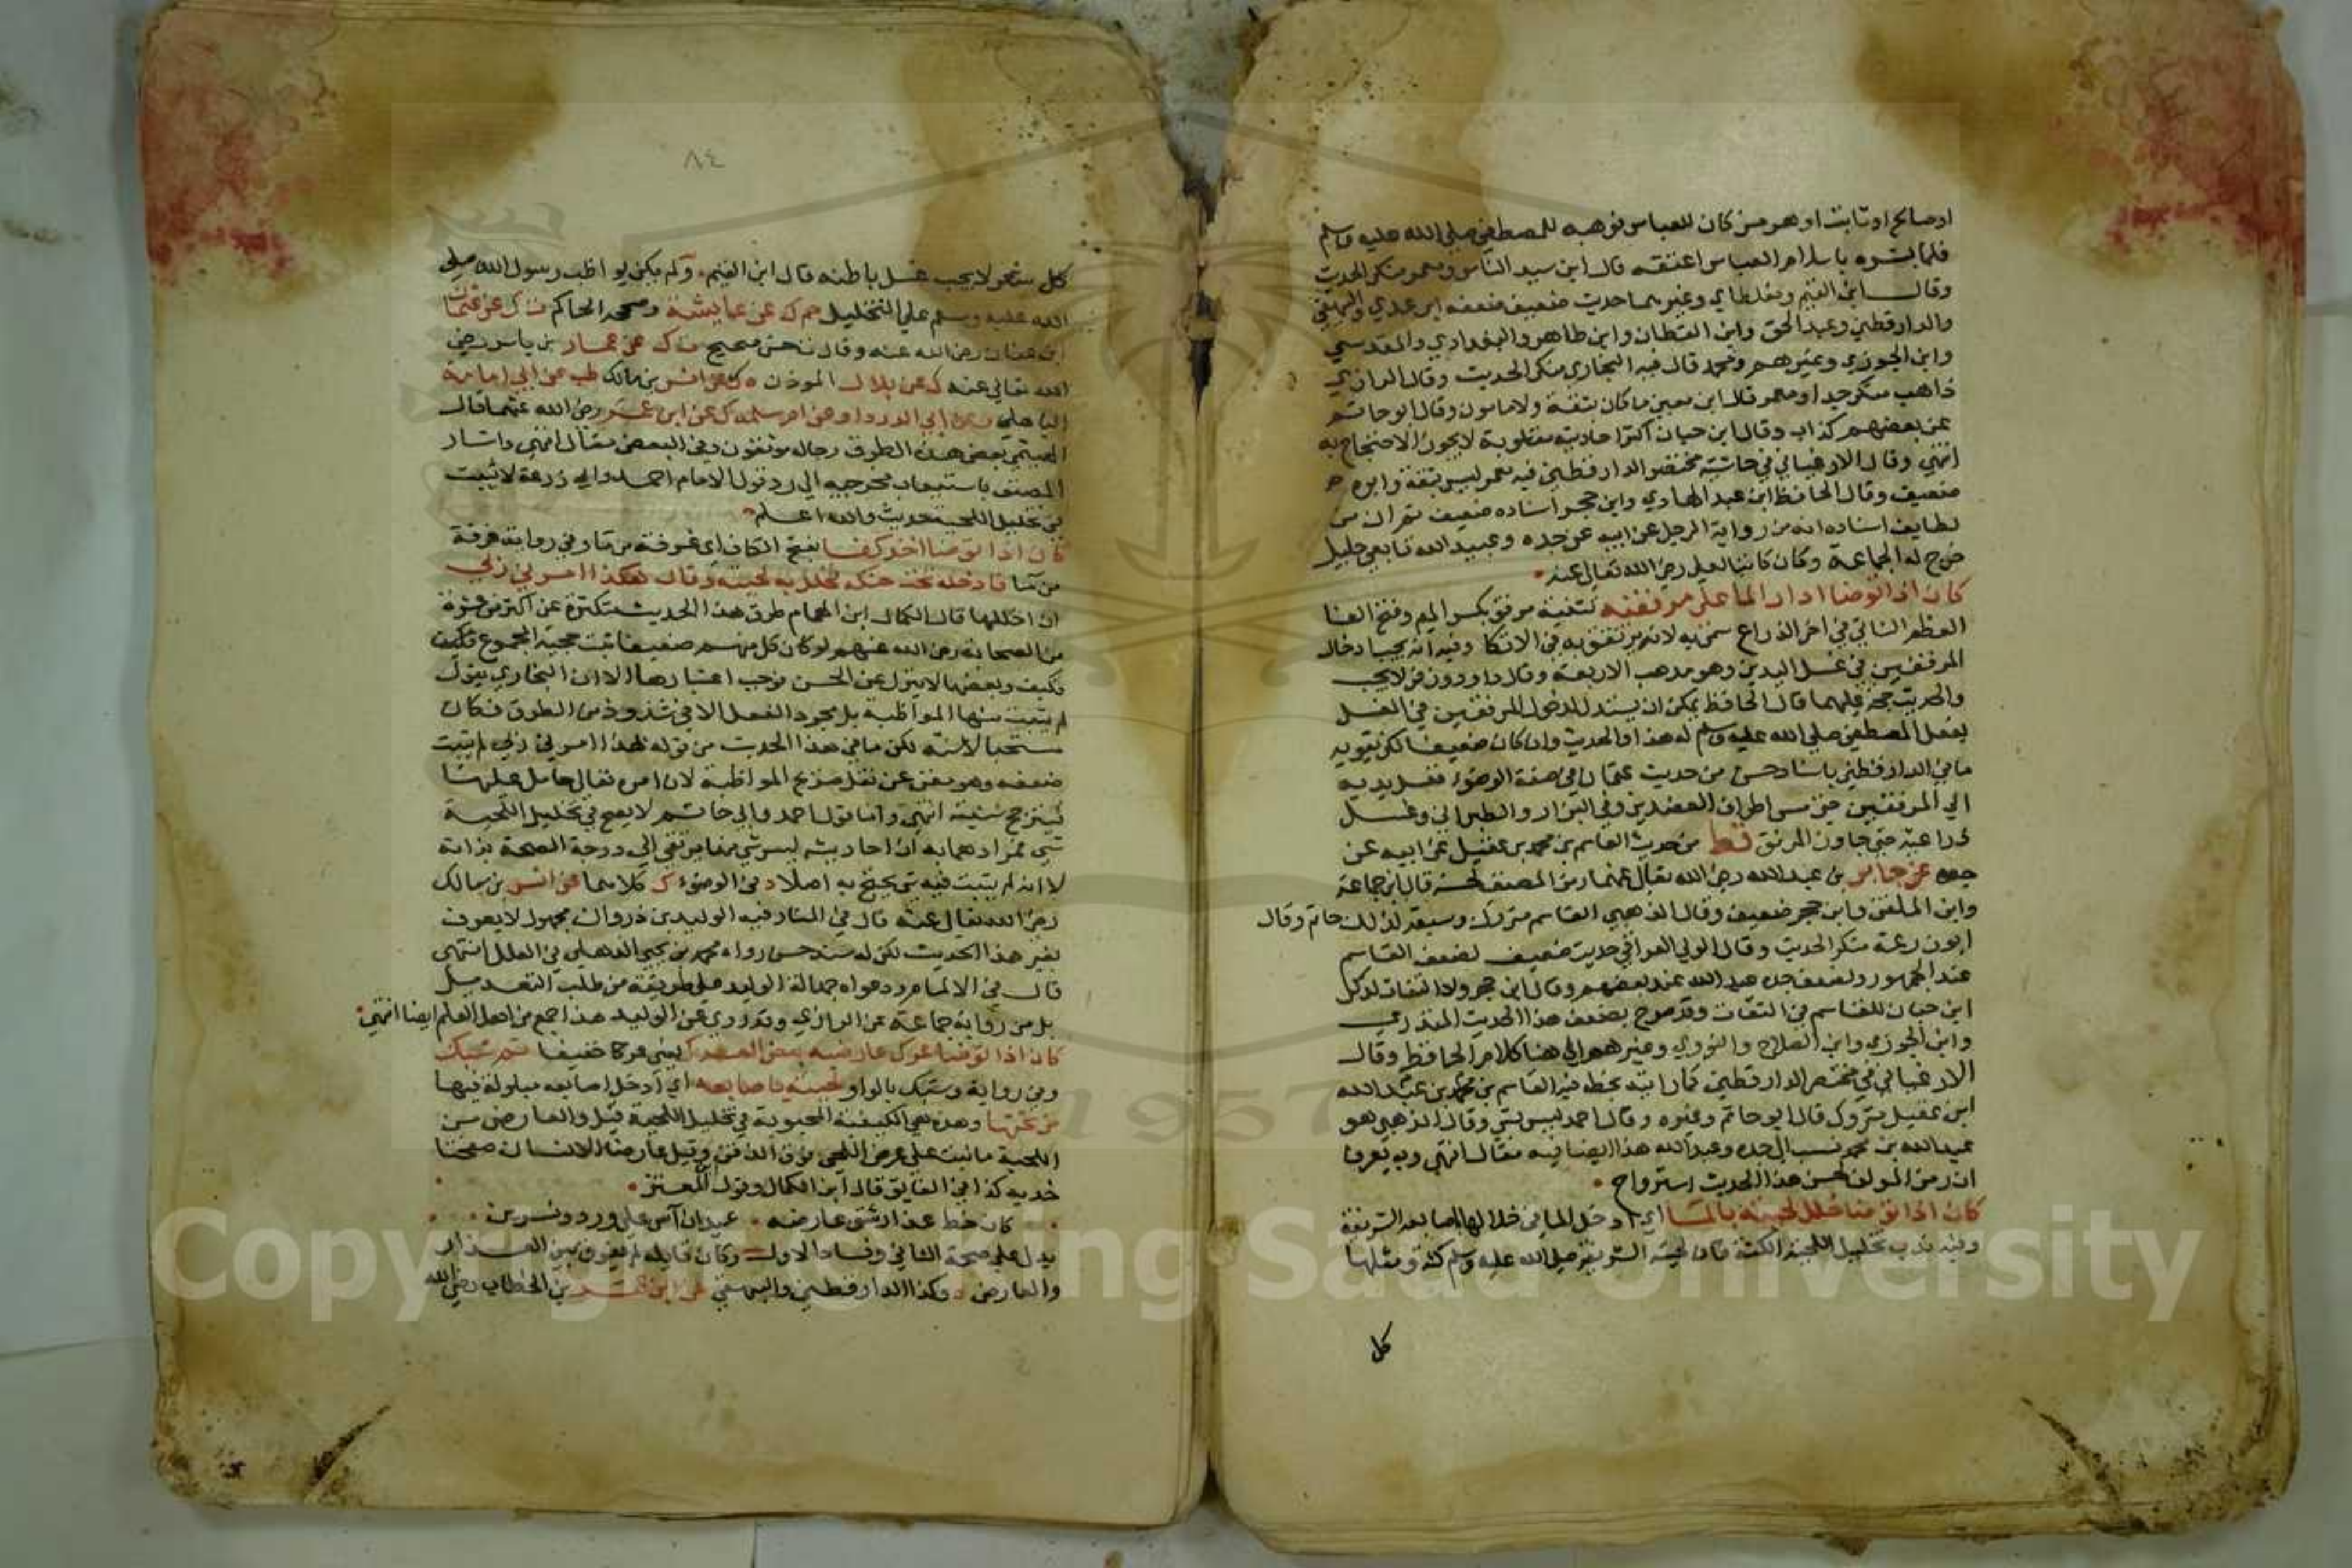 او صالح او ثابت او هرمز كان للعباس فوهبه للمصطفى صلى الله عليه وسلم
فلما بشره باسلام العباس اعتقه قال ابن سيد الناس ومعمر منكر الحديث
وقال ابن القيم ومغلطاي وغيرهما حديث ضعيف ضعفه ابن عدي والبيهقي
والدارقطني وعبد الحق وابن القطان وابن طاهر والبغدادي والمقدسي
وابن الجوزي وغيرهم ومحمد قال فيه البخاري منكر الحديث وقال الرازي
ذاهب منكر جدا ومعمر قال ابن معين ما كان ثقة ولا مامون وقال ابو حاتم
عن بعضهم كذاب وقال ابن حبان اكثر احاديثه مقلوبة لا يجوز الاحتجاج به
انتهى وقال الارغياني في حاشية مختصر الدارقطني فيه معمر ليس بثقة وابوه
ضعيف وقال الحافظ ابن عبد الهادي وابن حجر اسناده ضعيف ثم ان من
لطايف اسناده انه من رواية الرجل عن ابيه عن جده وعبيد الله تابعي جليل
خرج له الجماعة وكان كاتبا لعلي رضي الله تعالى عنه
كان اذا توضا ادار الما على مرفقيه تثنية مرفق بكسر الميم وفتح الفا
العظم الناتي في اخر الذراع سمي به لانه يرتفق به في الاتكا وفيه انه يجب ادخال
المرفقين في غسل اليدين وهو مذهب الاربعة وقال داود وزفر لا يجب
والحديث حجة عليهما قال الحافظ يمكن ان يستدل لدخول المرفقين في الغسل
بفعل المصطفى صلى الله عليه وسلم له هذا والحديث وان كان ضعيفا لكن يقويه
ما في الدارقطني باسناد حسن من حديث عثمان في صفة الوضوء فغسل يديه
الى المرفقين حتى مس اطراف العضدين وفي البزار والطبراني وغسل
ذراعيه حتى جاوز المرفق قط من حديث القاسم بن محمد بن عقيل عن ابيه عن
جده عن جابر بن عبد الله رضي الله تعالى عنهما رمز المصنف لحسنه قال ابن جماعة
وابن الملقن وابن حجر ضعيف وقال الذهبي القاسم متروك وسبقه لذلك حاتم وقال
ابو زرعة منكر الحديث وقال الولي العراقي حديث ضعيف لضعف القاسم
عند الجمهور ولضعف جده عبد الله عند بعضهم وقال ابن حجر ولا التفات لذكر
ابن حبان للقاسم في الثقات وقد صرح بضعف هذا الحديث المنذري
وابن الجوزي وابن الصلاح والنووي وغيرهم الى هنا كلام الحافظ وقال
الارغياني في مختصر الدارقطني كما رايته بخطه فيه القاسم بن محمد بن عبد الله
ابن عقيل متروك قال ابو حاتم وغيره وقال احمد ليس بشي وقال الذهبي هو
عبد الله بن محمد نسب الى جده وعبد الله هذا ايضا فيه مقال انتهى وبه يعرف
ان رمز المولف لحسن هذا الحديث استرواح
كان اذا توضا خلل لحيته بالما اي ادخل الما في خلالها باصابعه الشريفة
وفيه ندب تخليل اللحية الكثة فان لحيته الشريفة صلى الله عليه وسلم كثة ومثلها
كل
٨٤
كل شعر لا يجب غسل باطنه قال ابن القيم ولم يكن يواظب رسول الله صلى
الله عليه وسلم على التخليل حم ك عن عايشة وصححه الحاكم ت ك عن عثمان
ابن عفان رضي الله عنه وقال ت حسن صحيح ت ك عن عمار بن ياسر رضي
الله تعالى عنه ك عن بلال الموذن ه ك عن انس بن مالك طب عن ابي امامة
الباهلي وعن ابي الدرداء وعن ام سلمة ك عن ابن عمر رضي الله عنهما قال
الهيتمي بعض هذه الطرق رجاله موثقون وفي البعض مقال انتهى واشار
المصنف باستيعاب مخرجيه الى رد قول الامام احمد وابي زرعة لا يثبت
في تخليل اللحية حديث والله اعلم
كان اذا توضا اخذ كفا بفتح الكاف اي غرفة من ما وفي رواية غرفة
من ما فادخله تحت حنكه فخلل به لحيته وقال هكذا امرني ربي
ان اخللها قال الكمال ابن الهمام طرق هذا الحديث متكثرة عن اكثر من عشرة
من الصحابة رضي الله عنهم لو كان كل منهم ضعيفا ثبت حجية المجموع فكيف
فكيف وبعضها لا ينزل عن الحسن فوجب اعتبارها الا ان البخاري يقول
لم يثبت منها المواظبة بل مجرد الفعل الا في شذوذ من الطرق فكان
مستحبا لا سنة لكن ما في هذا الحديث من قوله هكذا امرني ربي لم يثبت
ضعفه وهو مغن عن نقل صريح المواظبة لان امره تعالى حامل عليها
فيترجح سنيته انتهى واما قول احمد وابي حاتم لا يصح في تخليل اللحية
شي فمرادهما به ان احاديثه ليس شي منها يرتقي الى درجة الصحة بذاته
لا انه لم يثبت فيه شي يحتج به اصلا د في الوضوء ك كلاهما عن انس بن مالك
رضي الله تعالى عنه قال في المنار فيه الوليد بن زروان مجهول لا يعرف
بغير هذا الحديث لكن له سند حسن رواه محمد بن يحيى الذهلي في العلل انتهى
قال في الالمام ودعواه جهالة الوليد على طريقته من طلب التعديل
بل من رواية جماعة عن الراوي وقد روى عن الوليد هذا جمع من اهل العلم ايضا انتهى
كان اذا توضا عرك عارضيه بعض العرك يعني عركا خفيفا ثم شبك
وفي رواية وشبك بالواو لحيته باصابعه اي ادخل اصابعه مبلولة فيها
من تحتها وهذه هي الكيفية المحبوبة في تخليل اللحية قيل والعارض من
اللحية ما نبت على عرض اللحي فوق الذقن وقيل عارضا الانسان صفحتا
خديه كذا في الفايق قال ابن الكمال وقول المعتز
كان خط عذار شق عارضه عيدان آس على ورد ونسرين
يدل على صحة الثاني وفساد الاول وكان قايله لم يفرق بين العذار
والعارض ه وكذا الدارقطني والبيهقي عن ابن عمر بن الخطاب رضي الله
Copyright © King Saud University
1957